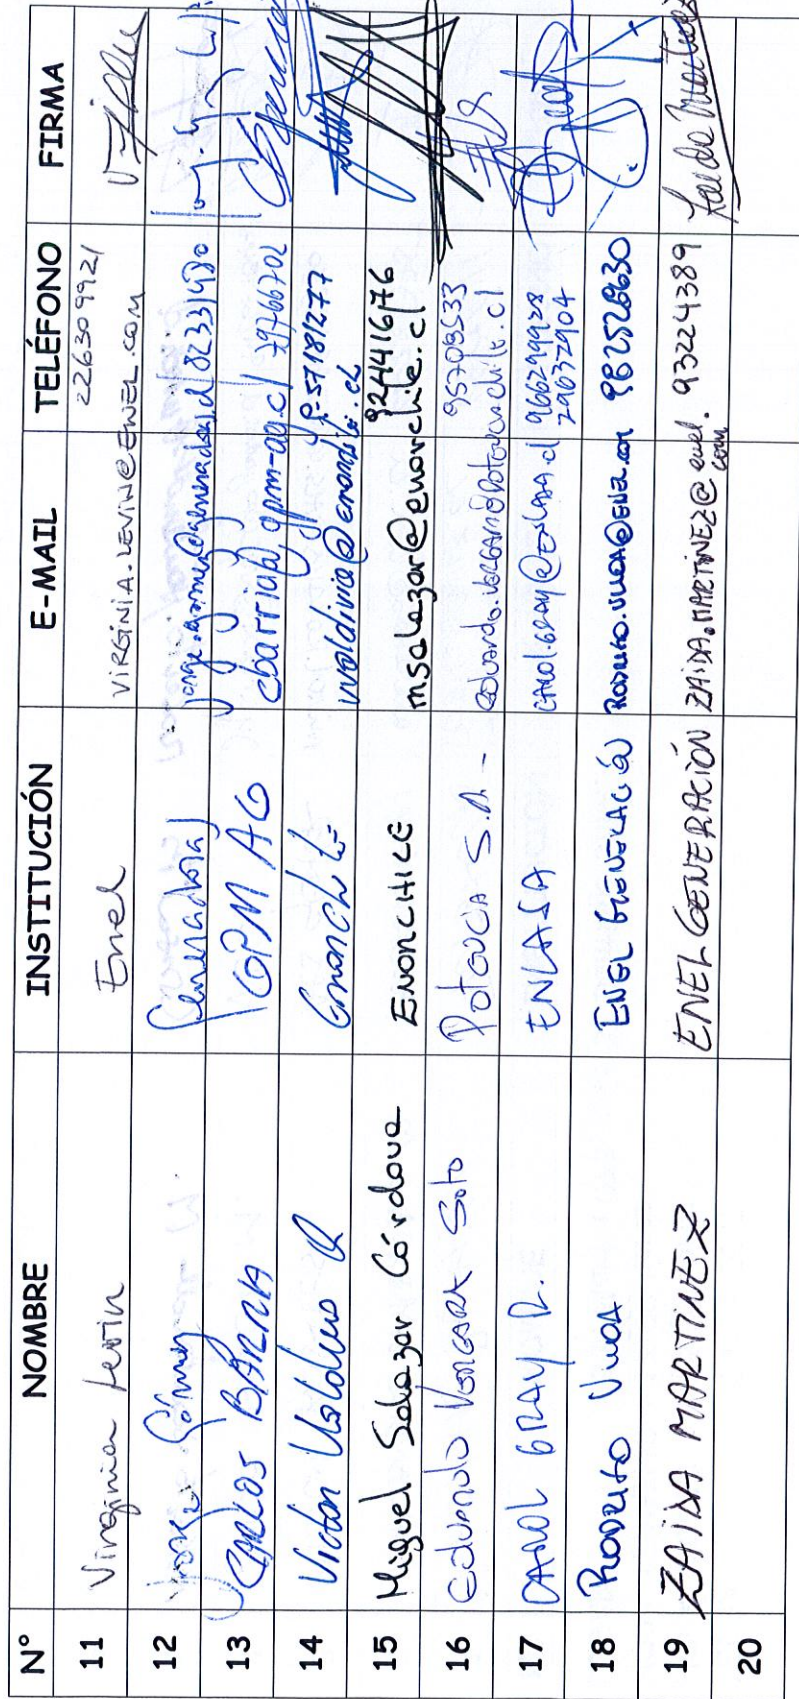 N° NOMBRE INSTITUCIÓN E-MAIL TELÉFONO FIRMA
11 Virginia Levin Enel VIRGINIA.LEVIN@ENEL.COM 226309921
12 Jorge Gómez Generadoras jorge.gomez@generadoras.cl 82331480
13 CARLOS BARRIA GPM AG cbarria@gpm-ag.cl 79766702
14 Victor Valdivia Q Enorchile vvaldivia@enorchile.cl 9-57181277
15 Miguel Salazar Córdova ENORCHILE msalazar@enorchile.cl 924416176
16 Eduardo Vergara Soto Potencia S.A.- 95708533
17 CAROL GRAY R. ENLASA CAROL.GRAY@ENLASA.cl 966299928
29632904
18 RODRIGO ENEL GENERACIÓN 982528630
19 ZAIDA MARTINEZ ENEL GENERACIÓN ZAIDA.MARTINEZ@enel.com 93224389 Zaida Martinez
20